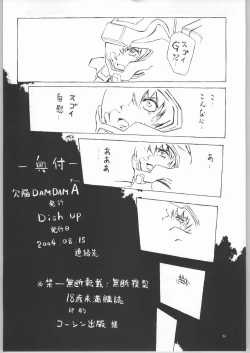 スゴイ
Gだ…
こんなに…
スゴイ
自慰…
あ
ああ
ー奥付ー
欠陥DAMDAM A
発行
Dish up
発行日
2004.08.15
連絡先
※禁一無断転載・無断複製
18歳未満雑誌
印刷
コーシン出版 様